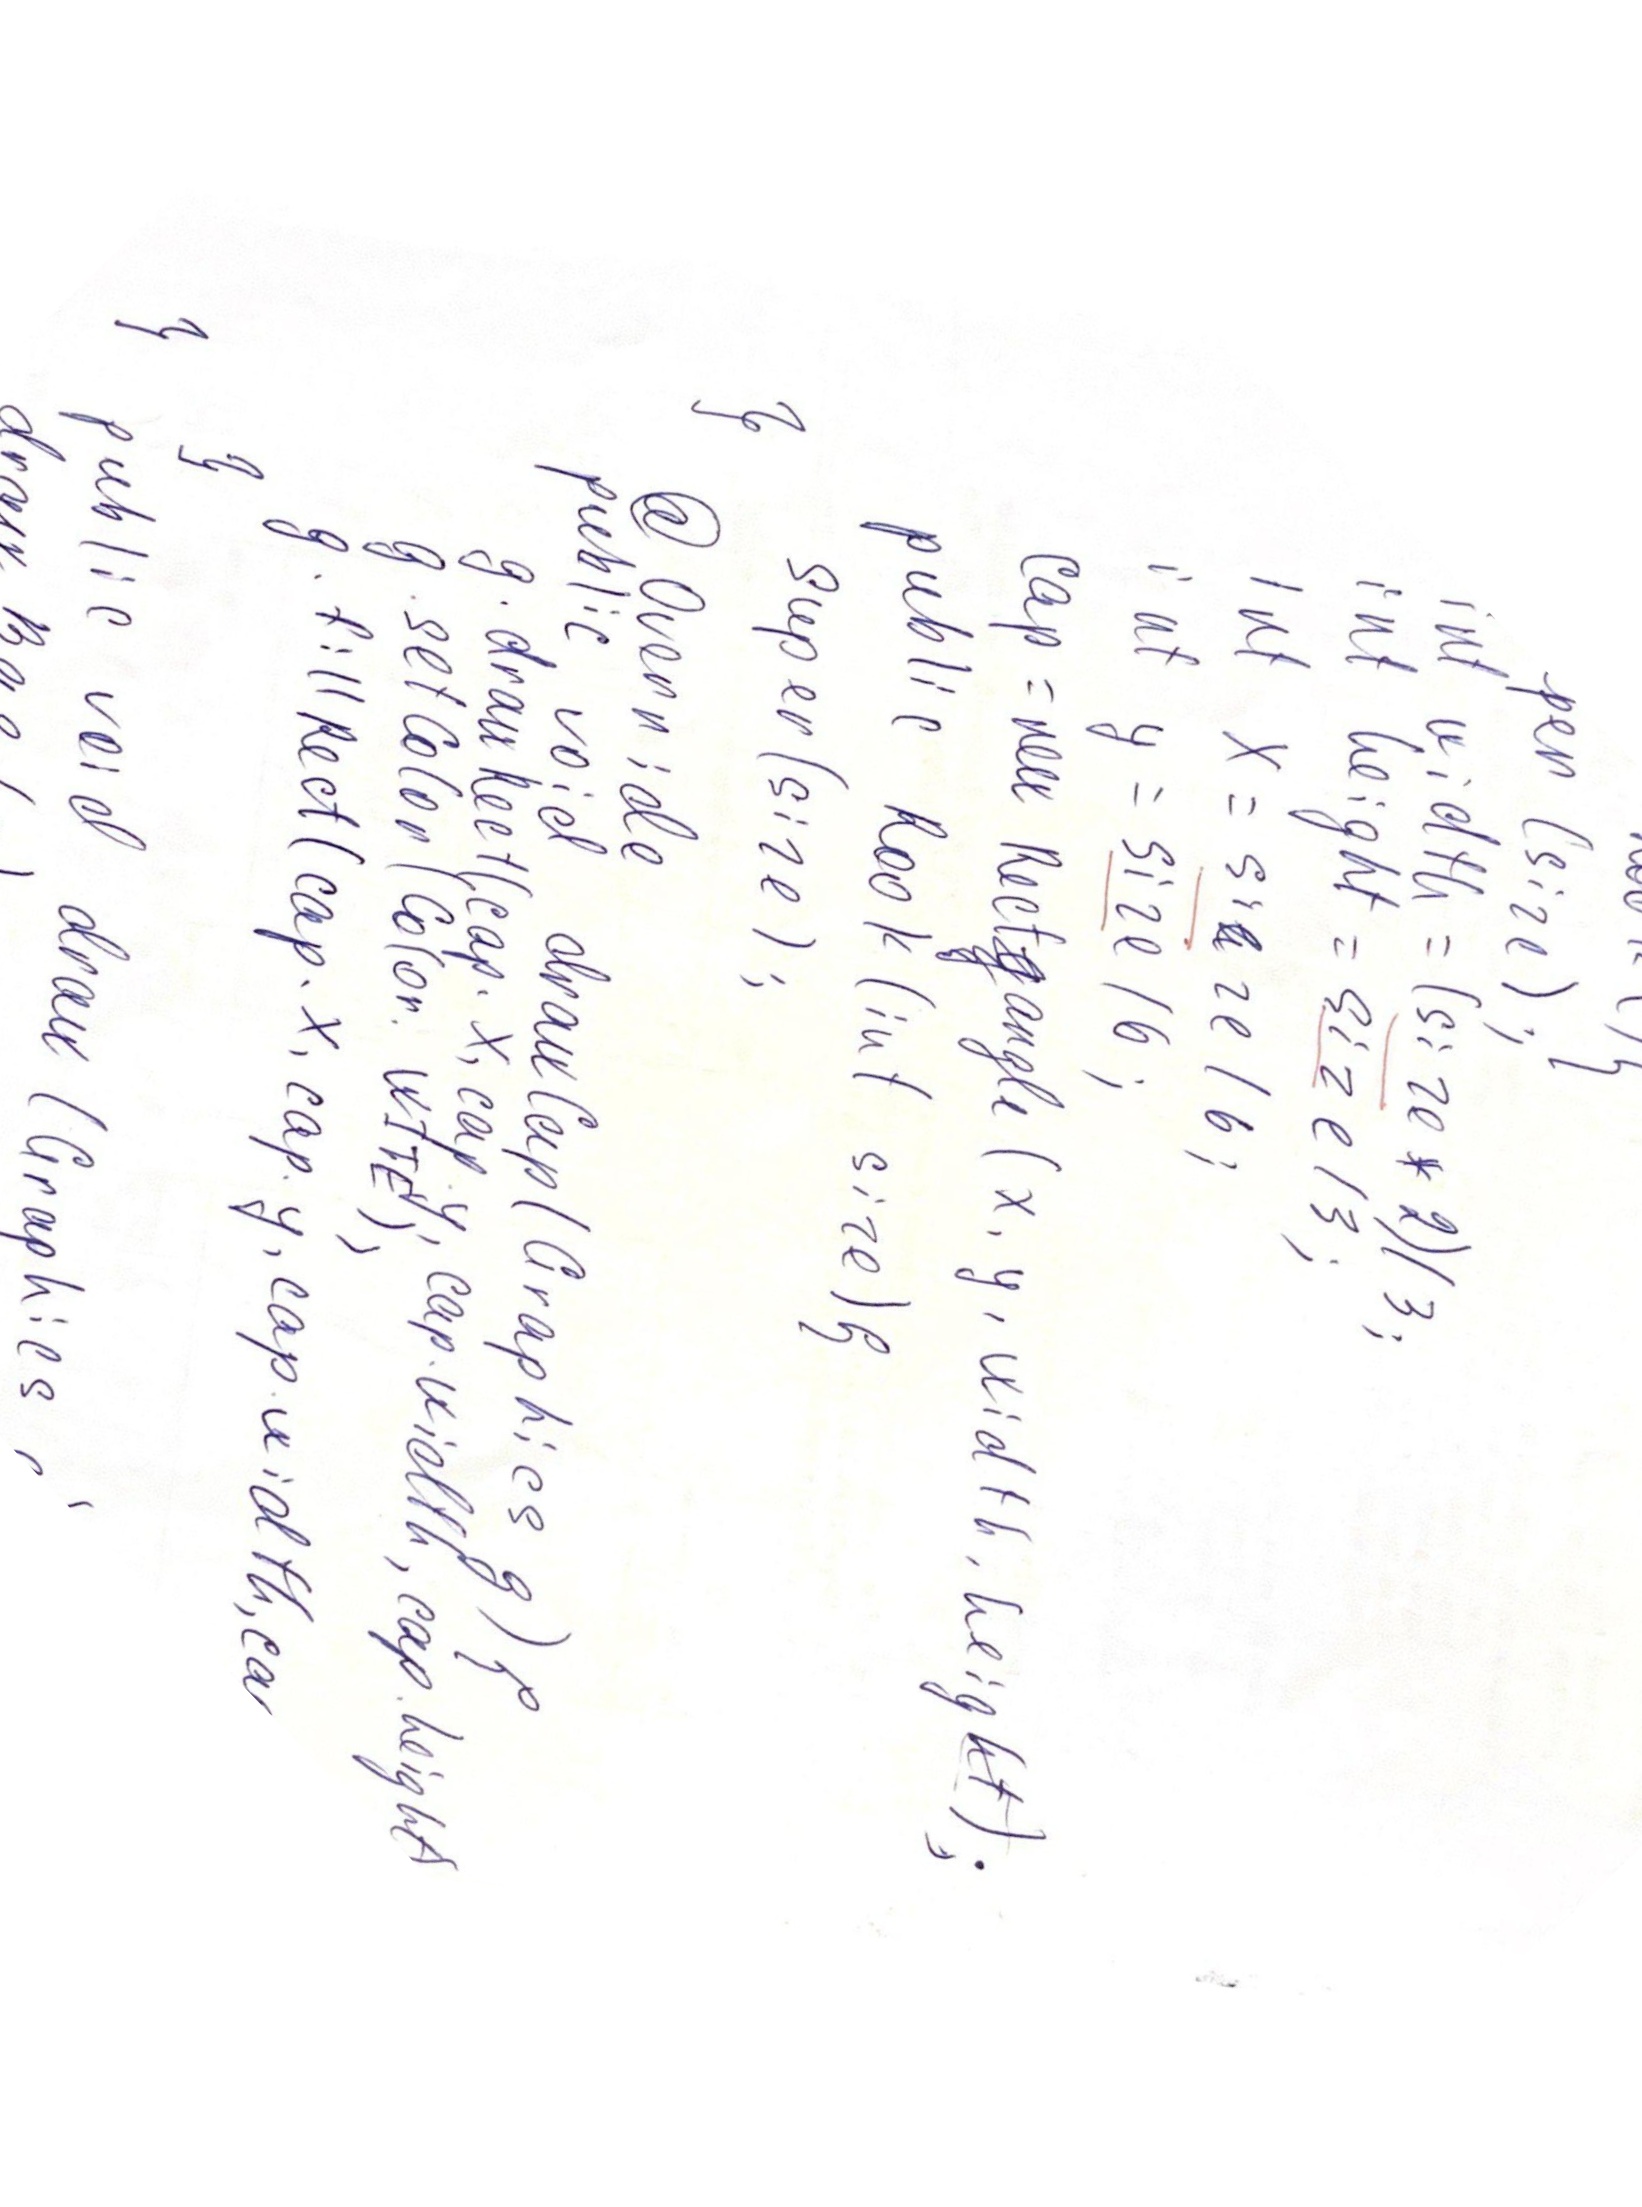 per (size); }
int width = (size * 2)/3;
int height = size/3;
int x = size/6;
int y = size/6;
Cap = new Rectangle (x, y, width, height);
public Rook (int size){
super(size);
}
@Override
public void drawCap(Graphics g){
g. drawRect(cap. x, cap. y, cap. width, cap. height
g. setColor(Color. WITE);
g. fillRect(cap. x, cap. y, cap. width, ca
}
}
public void draw (Graphics